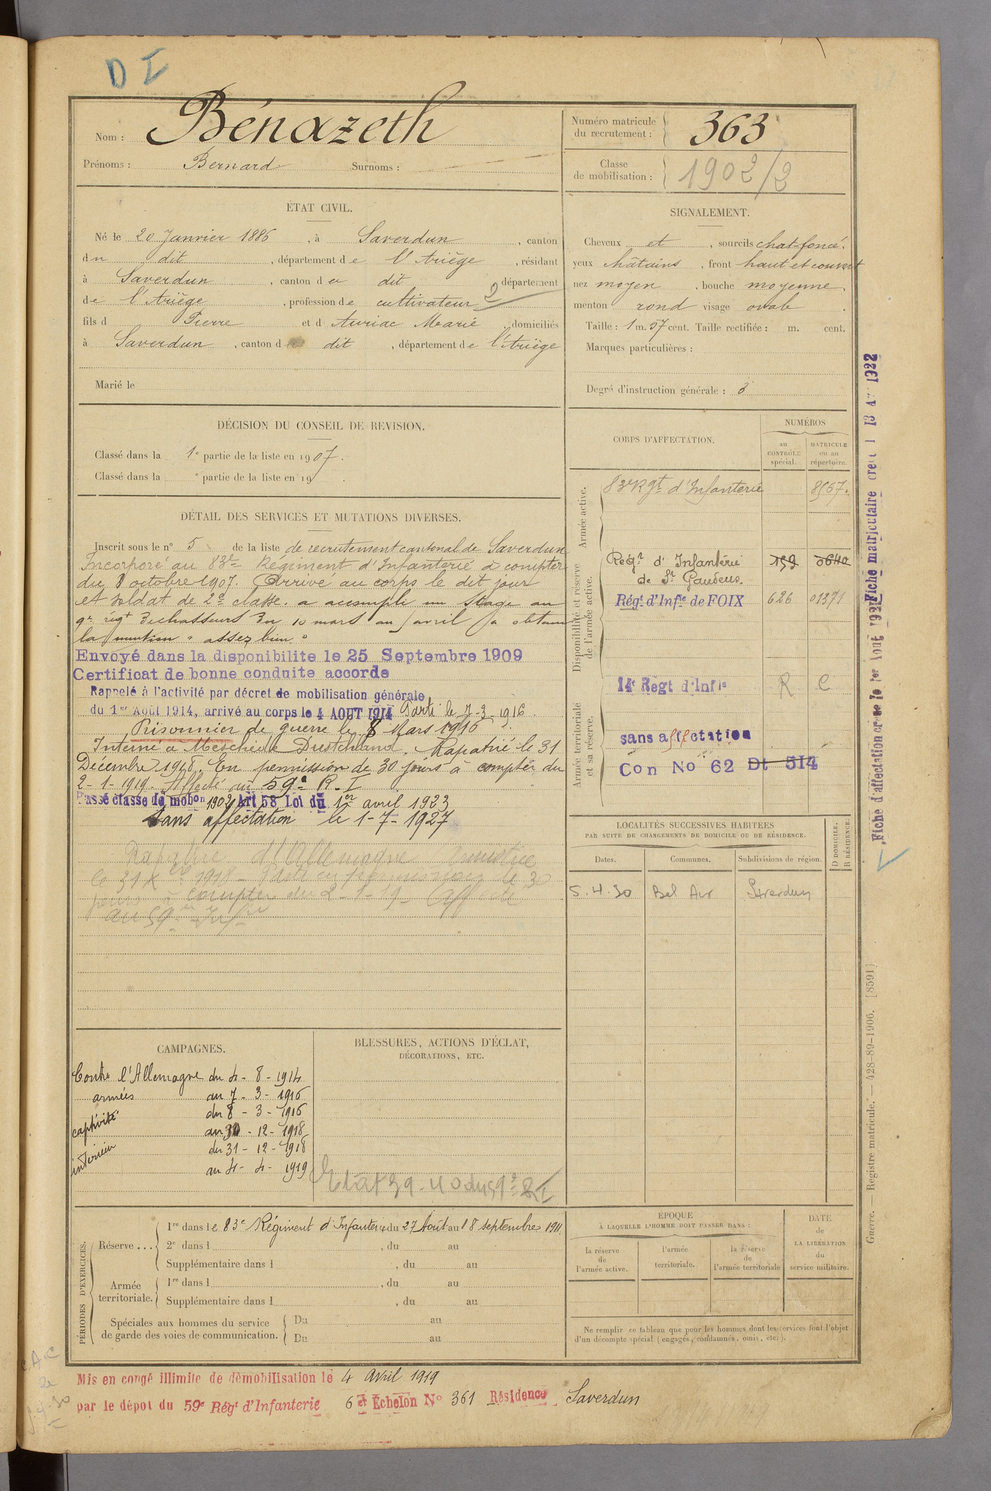 D I
Nom : Bénazeth
Prénoms : Bernard Surnoms :
Numéro matricule du recrutement : 363
Classe de mobilisation : 1902/2
ÉTAT CIVIL.
Né le 20 Janvier 1886, à Saverdun, canton
du dit, département de l'Ariège, résidant
à Saverdun, canton du dit département
de l'Ariège, profession de cultivateur 2
fils d Pierre et d Auriac Marie, domiciliés
à Saverdun, canton d dit, département de l'Ariège
Marié le
SIGNALEMENT.
Cheveux et, sourcils chat-foncé.
yeux châtains, front haut et couvert
nez moyen, bouche moyenne.
menton rond visage ovale.
Taille : 1 m. 57 cent. Taille rectifiée : m. cent.
Marques particulières :
Degré d'instruction générale : 3
DÉCISION DU CONSEIL DE REVISION.
Classé dans la 1e partie de la liste en 1907.
Classé dans la e partie de la liste en 19
DÉTAIL DES SERVICES ET MUTATIONS DIVERSES.
Inscrit sous le n° 5 de la liste de recrutement cantonal de Saverdun
Incorporé au 83e Régiment d'Infanterie à compter
du 8 octobre 1907. Arrivé au corps le dit jour
et soldat de 2e classe. a accompli un stage au
9e régt de chasseurs du 10 mars au avril a obtenu
la mention "assez bien"
Envoyé dans la disponibilite le 25 Septembre 1909
Certificat de bonne conduite accorde
Rappelé à l'activité par décret de mobilisation générale
du 1er Août 1914, arrivé au corps le 4 AOUT 1914 Parti le 7-3-1916.
Prisonnier de guerre le 8 Mars 1916.
Interné à Meschede. Rapatrié le 31
Décembre 1918. En permission de 30 jours à compter du
2-1-1919. Affecté au 59e R.I
Passé classe de mobon 1902 Art 58 Loi du 1er avril 1923
Sans affectation le 1-7-1927
Rapatrié d'Allemagne
le 31 Xbre 1918 - Parti en permission de 30
jours à compter du 2-1-19 - Affecté
au 59e Infie
CORPS D'AFFECTATION.
NUMÉROS
au CONTRÔLE spécial.
MATRICULE ou au répertoire.
Armée active.
83e Rgt d'Infanterie 8567.
Disponibilité et réserve de l'armée active.
Régt d'Infanterie de St Gaudens. 199 0640
Régt d'Infie de FOIX 626 01371
Armée territoriale et sa réserve.
14e Regt d'Infie R C
sans affectation
Con No 62 Dt 514
LOCALITÉS SUCCESSIVES HABITÉES
PAR SUITE DE CHANGEMENTS DE DOMICILE OU DE RÉSIDENCE.
Dates. Communes. Subdivisions de région. D DOMICILE. R RÉSIDENCE.
5.4.30 Bel Air Saverdun
CAMPAGNES.
Contre l'Allemagne du 4-8-1914
armées au 7-3-1916
captivité du 8-3-1916
au 30-12-1918
intérieur du 31-12-1918
au 4-4-1919
BLESSURES, ACTIONS D'ÉCLAT,
DÉCORATIONS, ETC.
PÉRIODES D'EXERCICES.
Réserve ... 1re dans le 83e Régiment d'Infanterie du 27 Août au 18 septembre 1911
2e dans l , du au
Supplémentaire dans l , du au
Armée territoriale. 1re dans l , du au
Supplémentaire dans l , du au
Spéciales aux hommes du service de garde des voies de communication. Du au
Du au
ÉPOQUE
À LAQUELLE L'HOMME DOIT PASSER DANS :
la réserve de l'armée active.
l'armée territoriale.
la réserve de l'armée territoriale
DATE de LA LIBÉRATION du service militaire.
Ne remplir ce tableau que pour les hommes dont les services font l'objet
d'un décompte spécial (engagés, condamnés, omis, etc.).
Mis en congé illimité de démobilisation le 4 Avril 1919
par le dépot du 59e Régt d'Infanterie 6e Échelon N° 361 Résidence Saverdun
Guerre. — Registre matricule. — 428-89-1906. [8591]